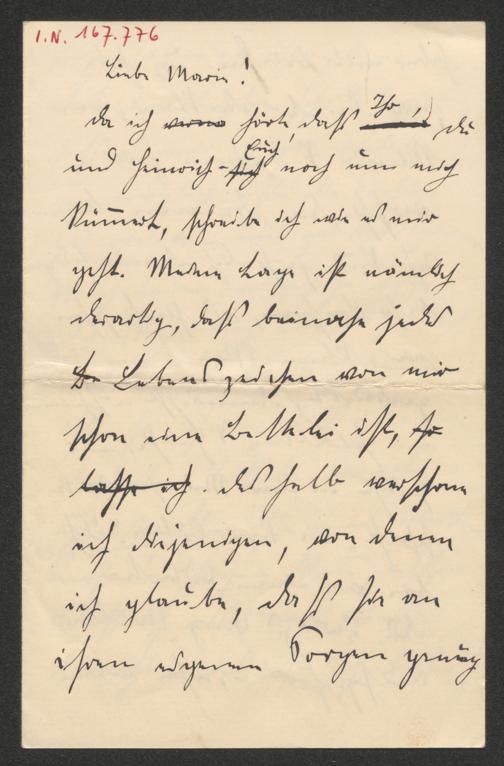 I.N. 167.776
Liebe Marie!
Da ich hörte, daß Ihr, du
und Heinrich - sich Euch noch um mich
kümmert, schreibe ich wie es mir
geht. Meine Lage ist nämlich
derartig, daß beinahe jedes
Lebenszeichen von mir
schon eine Bettelei ist, so
lasse ich. deshalb verschone
ich diejenigen, von denen
ich glaube, daß sie an
ihren eigenen Sorgen genug